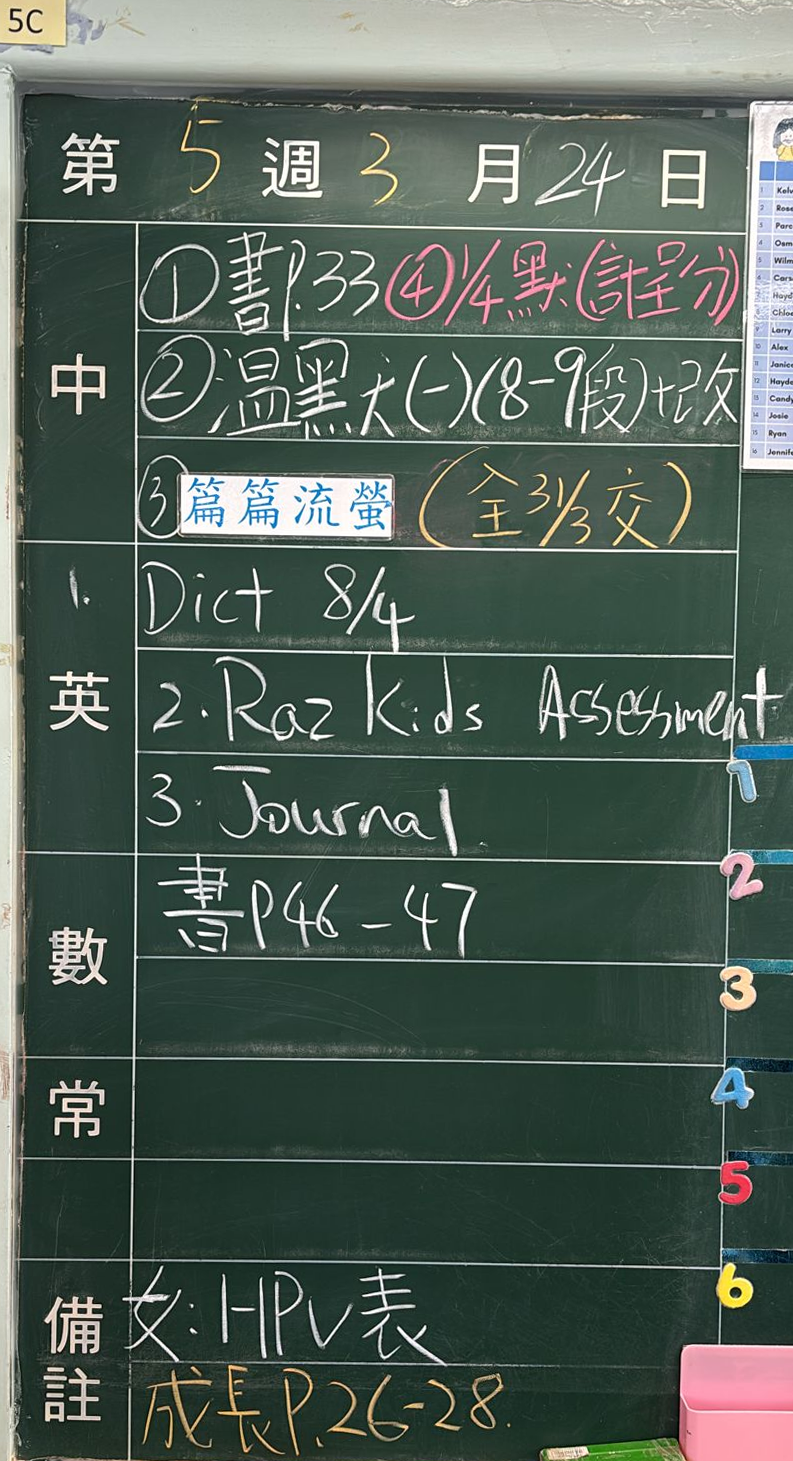 5C
第 5 週 3 月 24 日
中
① 書P.33 ④ 1/4 默(計呈分)
② 温默(一)(8-9段)+改
③ 篇篇流螢 (全 31/3 交)
英
1. Dict 8/4
2. Raz Kids Assessment
3. Journal
數
書P46-47
常
備註
女: HPV表
成長P.26-28.
1
2
3
4
5
6
1 Kelv
2 Rose
3 Parc
4 Osm
5 Wilm
6 Cars
Hayd
Chloe
9 Larry
10 Alex
11 Janice
12 Hayde
13 Candy
14 Josie
15 Ryan
16 Jennife